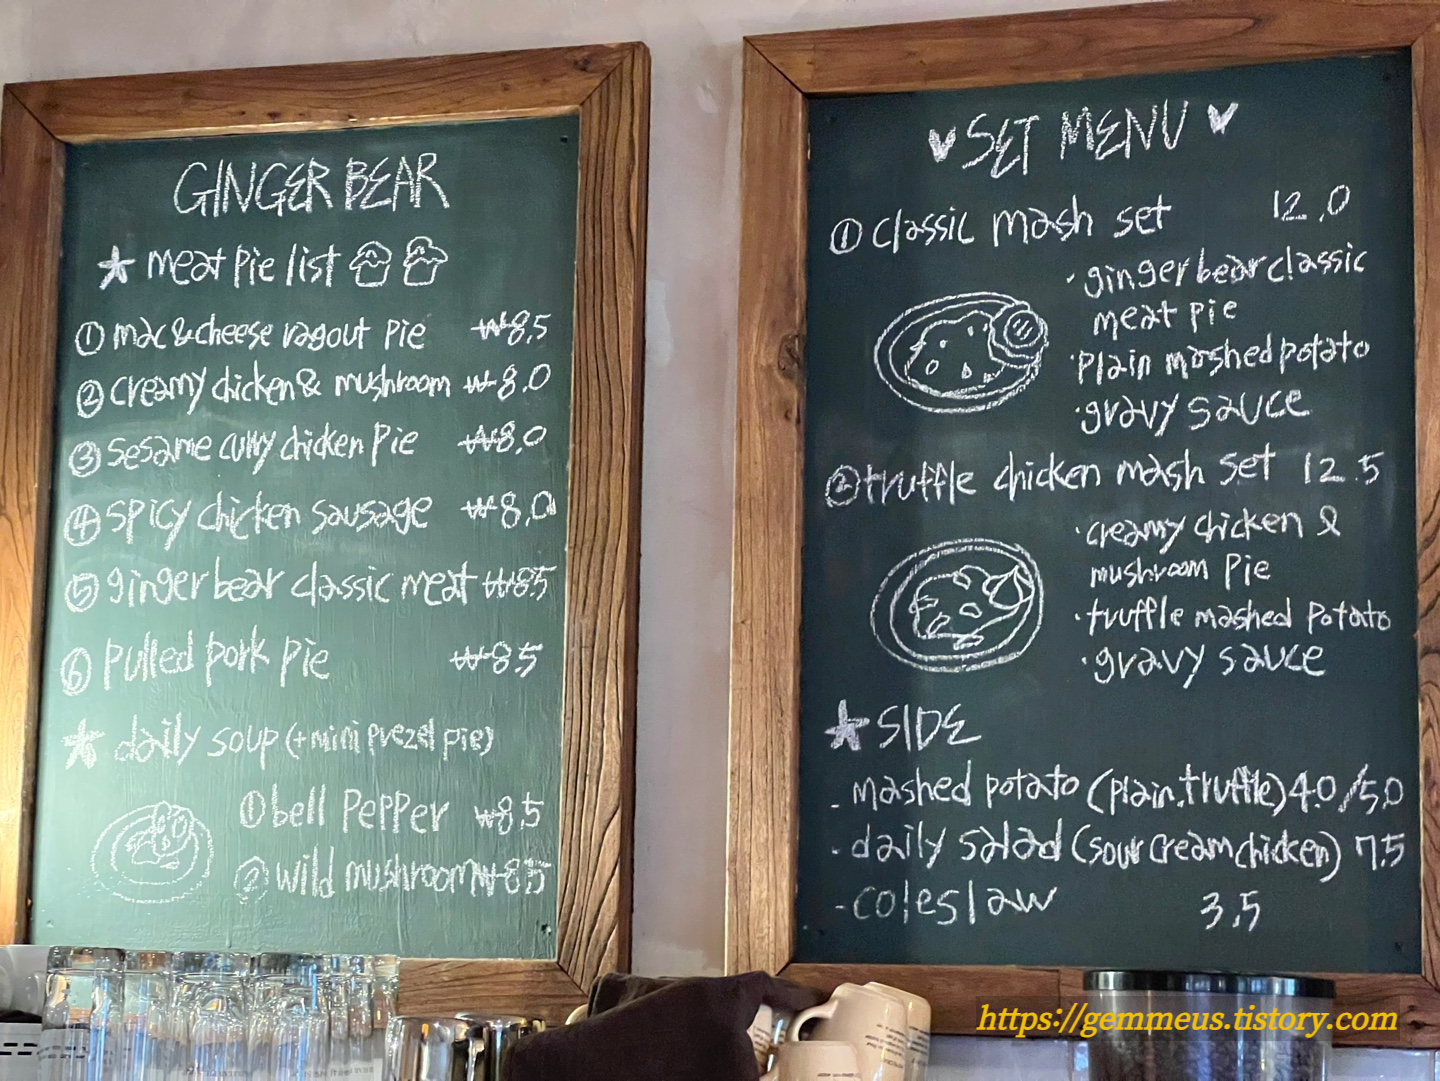 GINGER BEAR
★ meat pie list
① mac & cheese ragout pie ₩8.5
② creamy chicken & mushroom ₩8.0
③ sesame curry chicken pie ₩8.0
④ spicy chicken sausage ₩8.0
⑤ ginger bear classic meat ₩8.5
⑥ pulled pork pie ₩8.5
★ daily soup (+mini prezel pie)
① bell pepper ₩8.5
② wild mushroom ₩8.5
♥ SET MENU ♥
① classic mash set 12.0
· ginger bear classic
meat pie
· plain mashed potato
· gravy sauce
② truffle chicken mash set 12.5
· creamy chicken &
mushroom pie
· truffle mashed potato
· gravy sauce
★ SIDE
- mashed potato (plain, truffle) 4.0/5.0
- daily salad (sour cream chicken) 7.5
- coleslaw 3.5
https://gemmeus.tistory.com